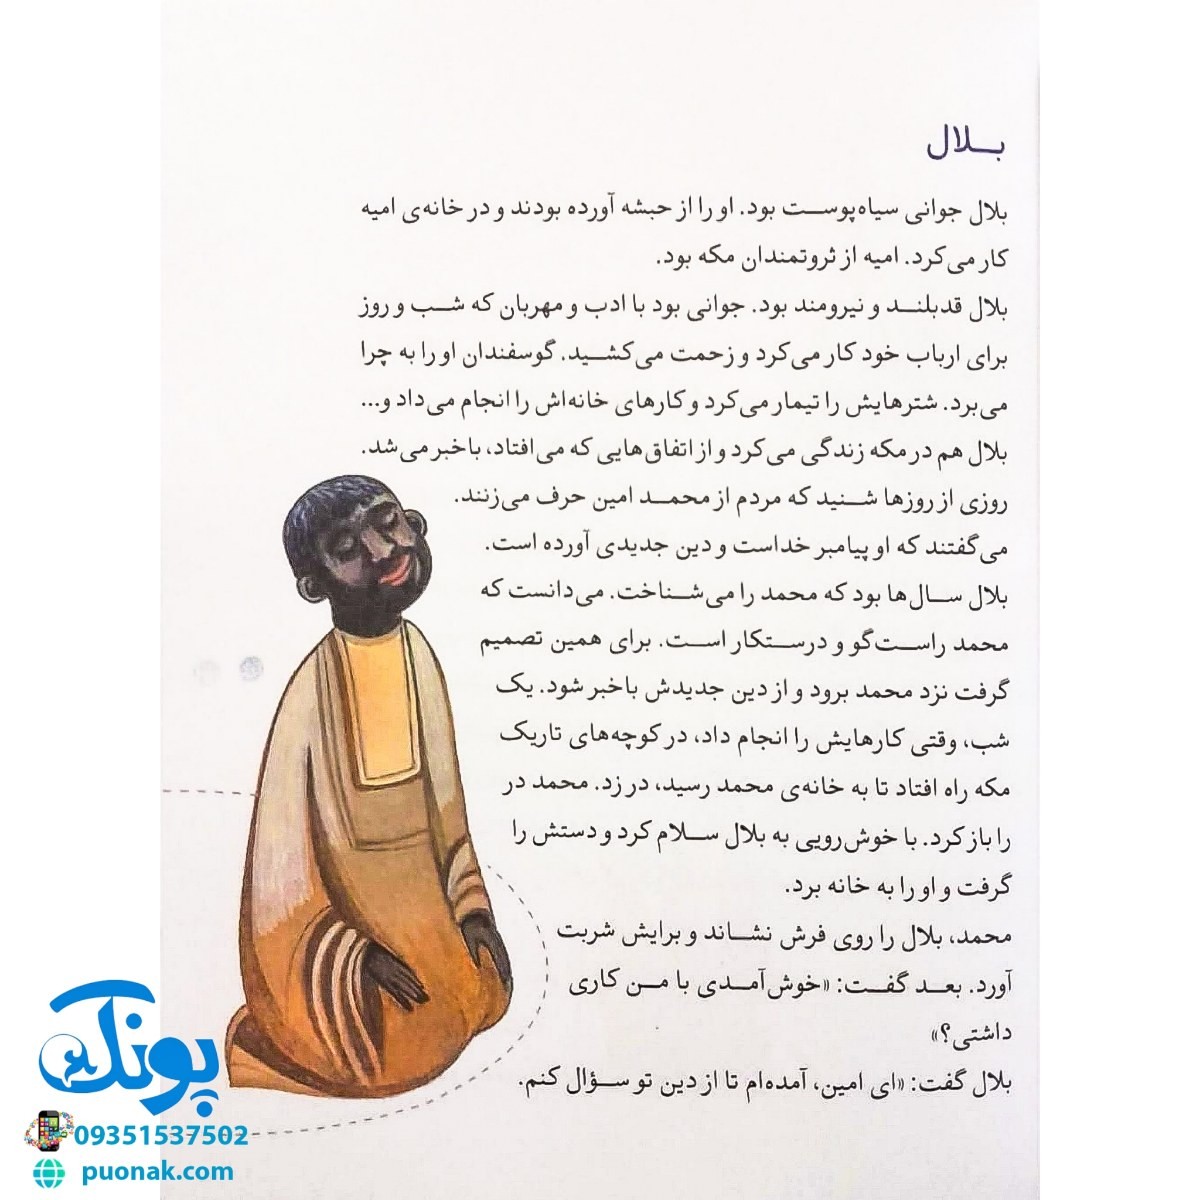 بلال
بلال جوانی سیاه‌پوست بود. او را از حبشه آورده بودند و در خانه‌ی امیه
کار می‌کرد. امیه از ثروتمندان مکه بود.
بلال قدبلند و نیرومند بود. جوانی بود با ادب و مهربان که شب و روز
برای ارباب خود کار می‌کرد و زحمت می‌کشید. گوسفندان او را به چرا
می‌برد. شترهایش را تیمار می‌کرد و کارهای خانه‌اش را انجام می‌داد و...
بلال هم در مکه زندگی می‌کرد و از اتفاق‌هایی که می‌افتاد، باخبر می‌شد.
روزی از روزها شنید که مردم از محمد امین حرف می‌زنند.
می‌گفتند که او پیامبر خداست و دین جدیدی آورده است.
بلال سال‌ها بود که محمد را می‌شناخت. می‌دانست که
محمد راست‌گو و درستکار است. برای همین تصمیم
گرفت نزد محمد برود و از دین جدیدش باخبر شود. یک
شب، وقتی کارهایش را انجام داد، در کوچه‌های تاریک
مکه راه افتاد تا به خانه‌ی محمد رسید، در زد. محمد در
را باز کرد. با خوش‌رویی به بلال سلام کرد و دستش را
گرفت و او را به خانه برد.
محمد، بلال را روی فرش نشاند و برایش شربت
آورد. بعد گفت: «خوش‌آمدی با من کاری
داشتی؟»
بلال گفت: «ای امین، آمده‌ام تا از دین تو سؤال کنم.
پونک
09351537502
puonak.com